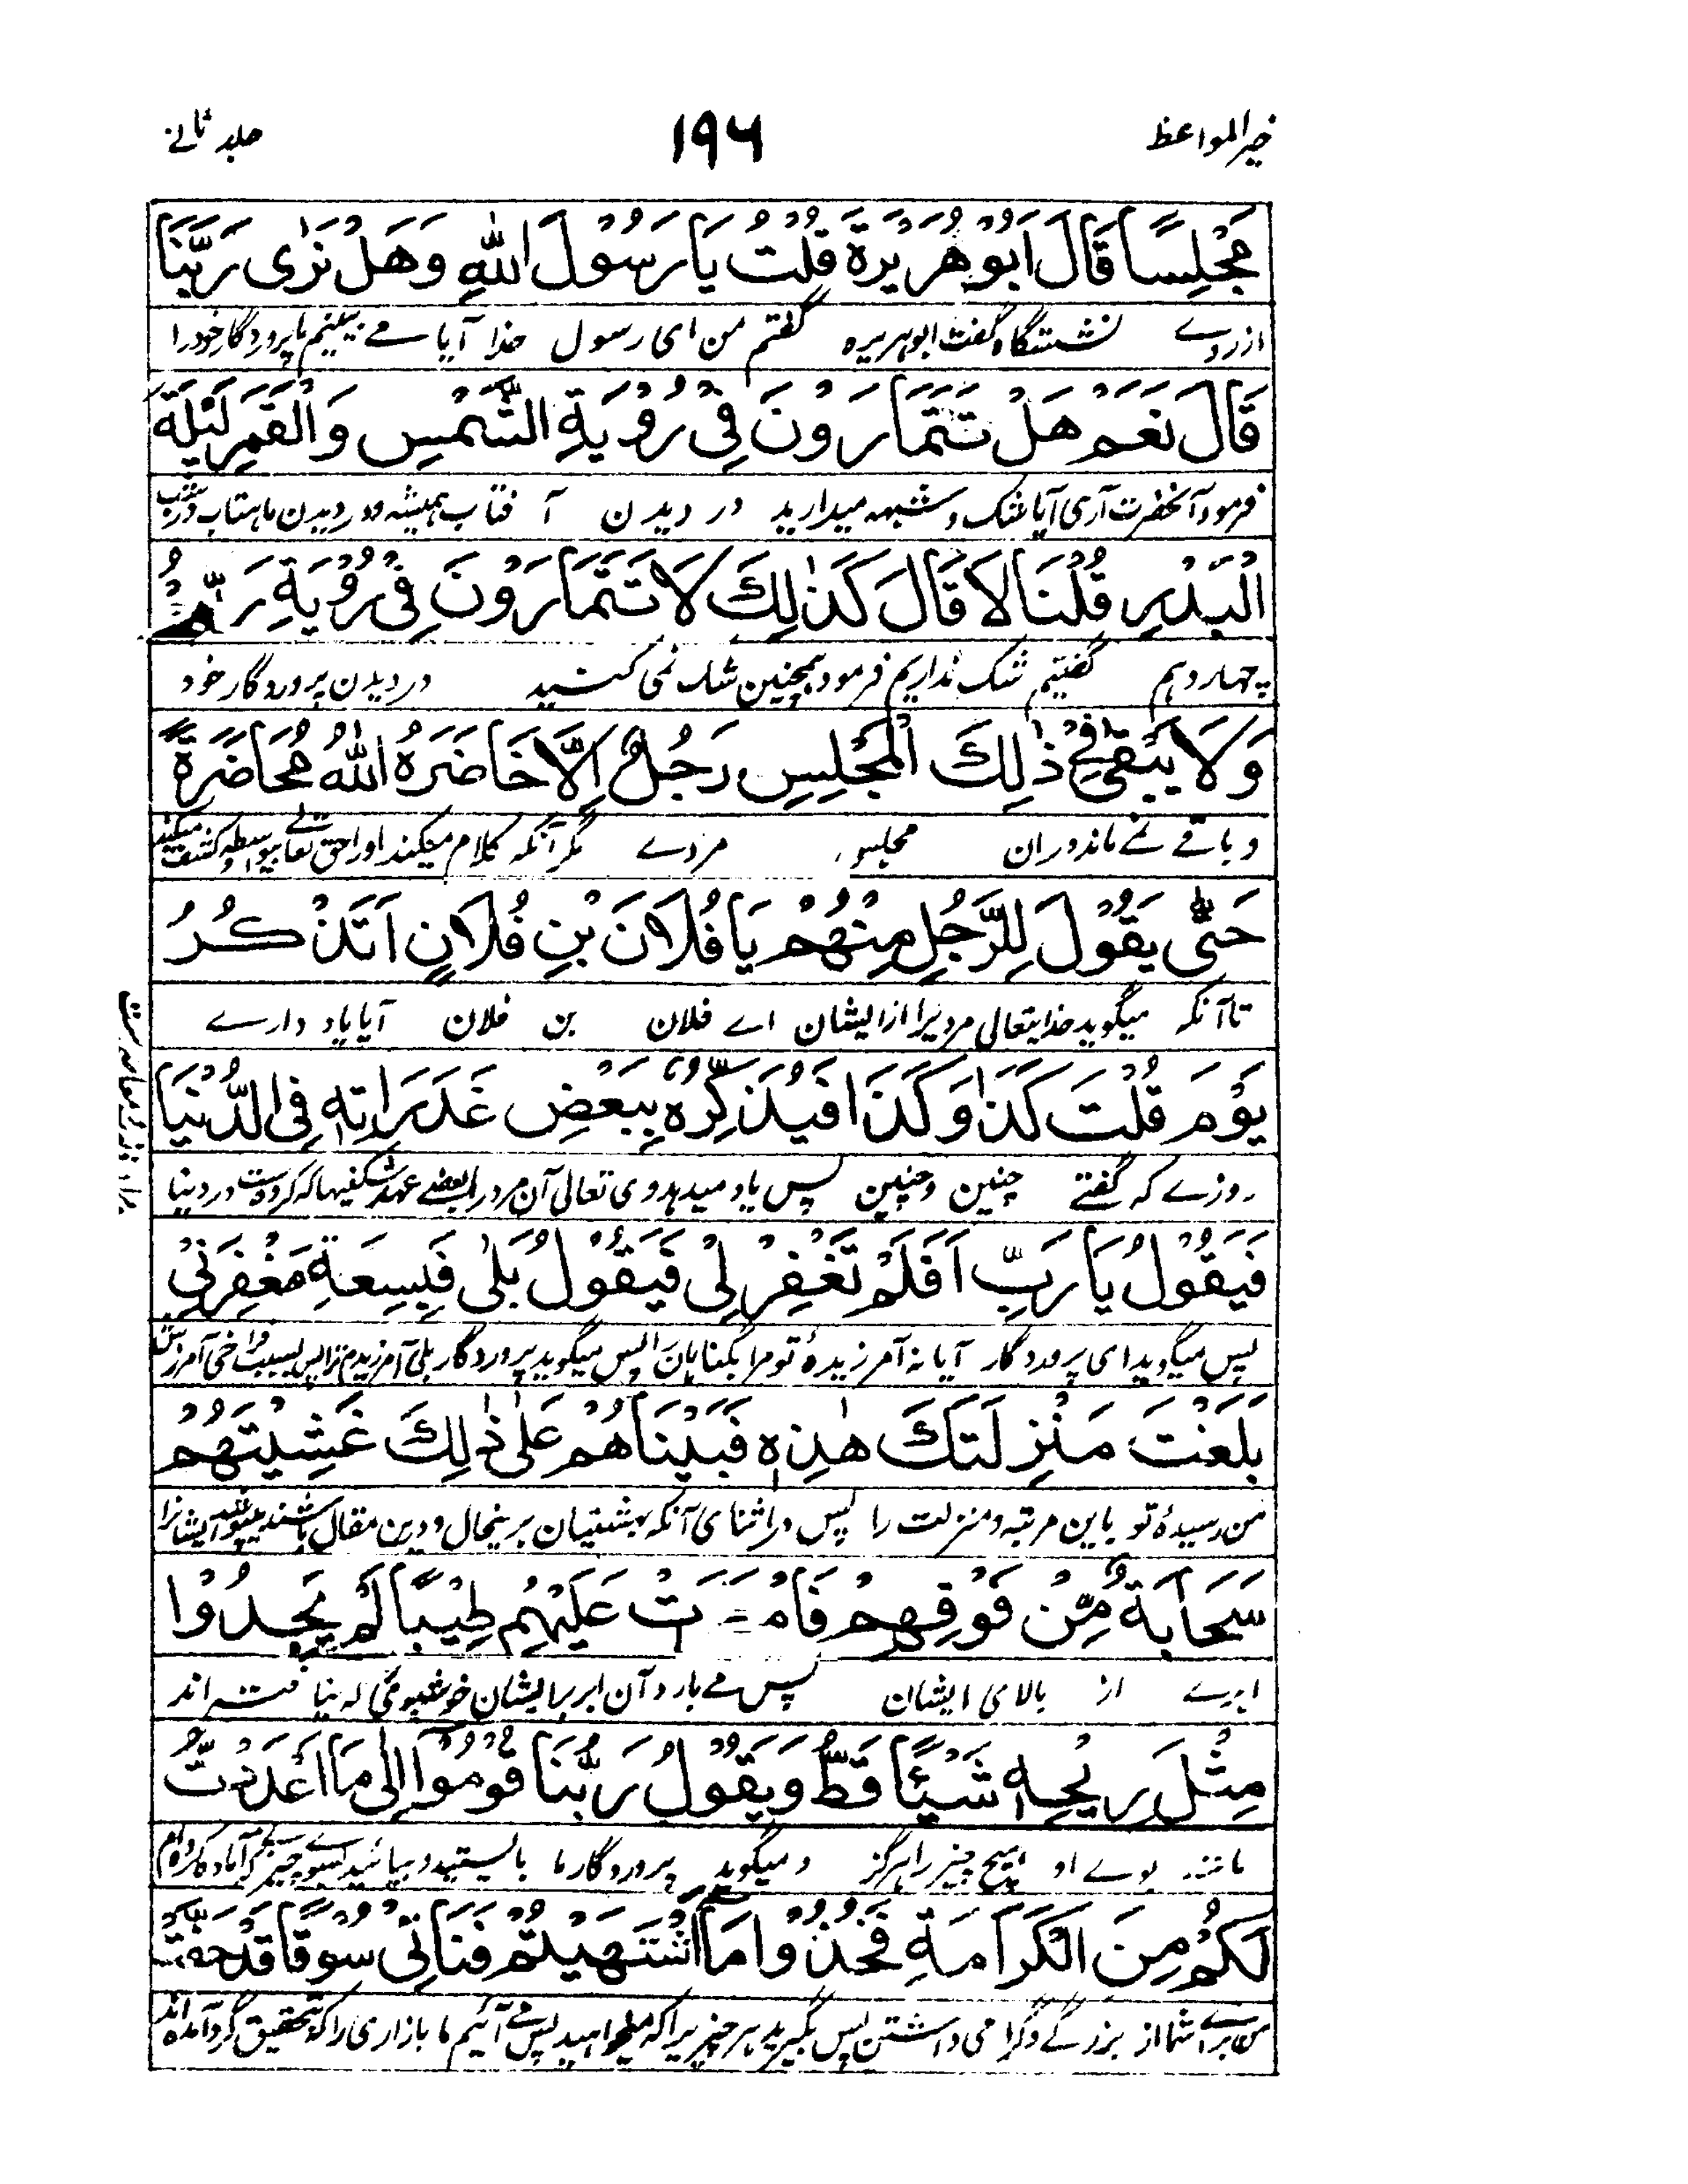 خیر المواعظ
۱۹۶
جلد ثانے
مَجْلِسًا قَالَ اَبُوْ هُرَيْرَةَ قُلْتُ يَا رَسُوْلَ اللّٰهِ وَهَلْ نَرٰى رَبَّنَا
ازروے نشستگاه گفت ابوهریره گفتم من ای رسول خدا آیا مے بینیم ما پروردگار خود را
قَالَ نَعَمْ هَلْ تَتَمَارَوْنَ فِىْ رُؤْيَةِ الشَّمْسِ وَالْقَمَرِ لَيْلَةَ
فرمود آنحضرت آری آیا شک و شبهه میدارید در دیدن آفتاب همیشه و در دیدن ماهتاب در شب
الْبَدْرِ قُلْنَا لَا قَالَ كَذٰلِكَ لَا تَتَمَارَوْنَ فِىْ رُؤْيَةِ رَبِّكُمْ
چهاردهم گفتیم شک نداریم فرمود همچنین شک نمی کنید در دیدن پروردگار خود
وَلَا يَبْقٰى فِىْ ذٰلِكَ الْمَجْلِسِ رَجُلٌ اِلَّا حَاضَرَهُ اللّٰهُ مُحَاضَرَةً
و باقے نمے ماند دران مجلس مردے مگر آنکه کلام میکند او را حق تعالے بیواسطه و کشف میکند
حَتّٰى يَقُوْلَ لِلرَّجُلِ مِنْهُمْ يَا فُلَانَ بْنِ فُلَانٍ اَتَذْكُرُ
تا آنکه میگوید خدایتعالی مردیرا از ایشان اے فلان بن فلان آیا یاد دارے
يَوْمَ قُلْتَ كَذَا وَكَذَا فَيُذَكِّرُهٗ بِبَعْضِ غَدَرَاتِهٖ فِى الدُّنْيَا
روزے که گفتے چنین و چنین پس یاد میدهد وی تعالی آن مرد را بعضے عهد شکنیها که کرده ست در دنیا
فَيَقُوْلُ يَا رَبِّ اَفَلَمْ تَغْفِرْ لِىْ فَيَقُوْلُ بَلٰى فَبِسِعَةِ مَغْفِرَتِىْ
پس میگوید ای پروردگار آیا نه آمرزیدهٔ تو مرا گناهان پس میگوید پروردگار بلی آمرزیدم ترا پس بسبب فراخی آمرزش
بَلَغْتَ مَنْزِلَتَكَ هٰذِهٖ فَبَيْنَاهُمْ عَلٰى ذٰلِكَ غَشِيَتْهُمْ
من رسیدهٔ تو باین مرتبه و منزلت را پس در اثنای آنکه بهشتیان برینحال و درین مقال باشند میپوشد ایشانرا
سَحَابَةٌ مِّنْ فَوْقِهِمْ فَاَمْطَرَتْ عَلَيْهِمْ طِيْبًا لَمْ يَجِدُوْا
ابرے از بالای ایشان پس مے بارد آن ابر بر ایشان خوشبوئی که نیافته اند
مِثْلَ رِيْحِهٖ شَيْئًا قَطُّ وَيَقُوْلُ رَبُّنَا قُوْمُوْا اِلٰى مَا اَعْدَدْتُّ
مانند بوے او هیچ چیز را هرگز و میگوید پروردگار ما بایستید و بیائید بسوے چیزیکه آماده کرده ام
لَكُمْ مِنَ الْكَرَامَةِ فَخُذُوْا مَا اشْتَهَيْتُمْ فَنَاْتِىْ سُوْقًا قَدْ حَفَّتْ
من براے شما از بزرگے و گرامی داشتن پس بگیرید هر چیزیرا که میخواهید پس مے آئیم ما بازاری را که بتحقیق گرد آمده اند